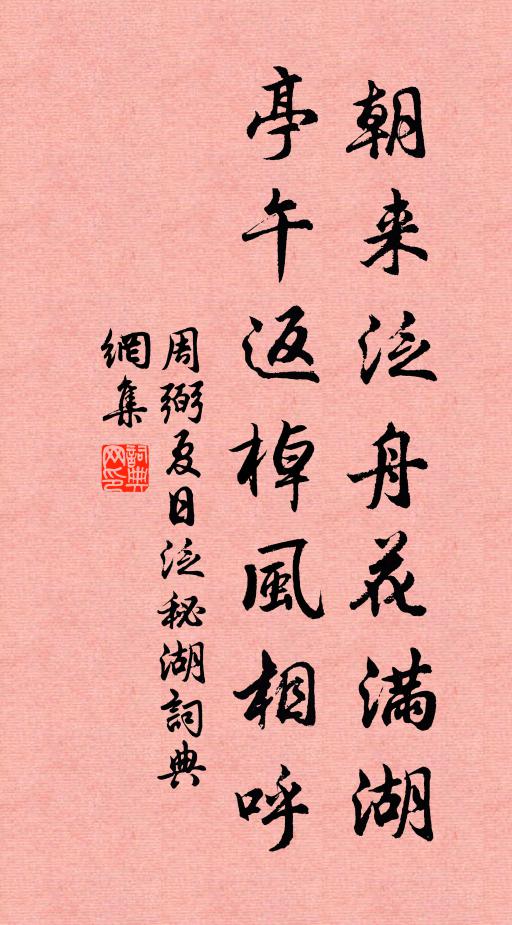 朝来泛舟花满湖
亭午返棹風相呼
周弼夏日泛秘湖詞典
網集
詞典網印